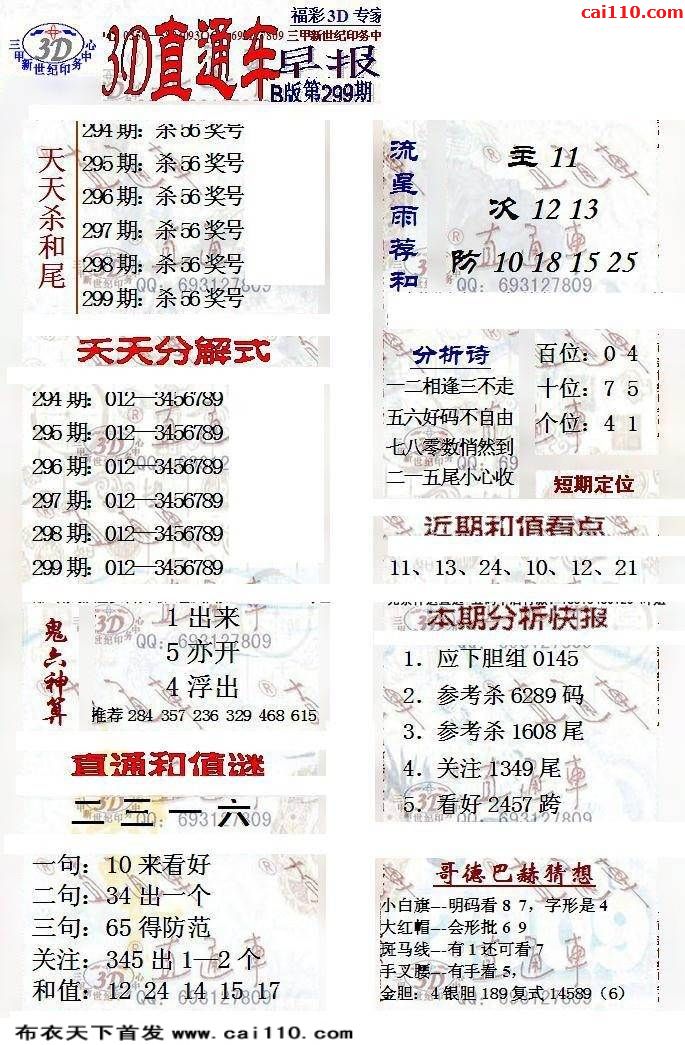 cai110.com
福彩3D专家
三甲新世纪印务中心
3D
3D直通车
早报
B版第299期
天天杀和尾
294期：杀56奖号
295期：杀56奖号
296期：杀56奖号
297期：杀56奖号
298期：杀56奖号
299期：杀56奖号
QQ: 693127809
流星雨荐和
主 11
次 12 13
防 10 18 15 25
QQ: 693127809
天天分解式
294期：012—3456789
295期：012—3456789
296期：012—3456789
297期：012—3456789
298期：012—3456789
299期：012—3456789
分析诗
一二相逢三不走
五六好码不自由
七八零数悄然到
二一五尾小心收
百位：0 4
十位：7 5
个位：4 1
短期定位
近期和值看点
11、13、24、10、12、21
鬼六神算
1出来
5亦开
4浮出
推荐 284 357 236 329 468 615
QQ: 693127809
本期分析快报
1．应下胆组0145
2．参考杀6289码
3．参考杀1608尾
4．关注1349尾
5．看好2457跨
QQ: 693127809
直通和值谜
二 三 一 六
QQ: 693127809
一句：10来看好
二句：34出一个
三句：65得防范
关注：345出1—2个
和值：12 24 14 15 17
哥德巴赫猜想
小白旗---明码看8 7，字形是4
大红帽---会形批6 9
斑马线---有1还可看7
手叉腰---有手看5，
金胆：4银胆189复式14589（6）
布衣天下首发 www.cai110.com